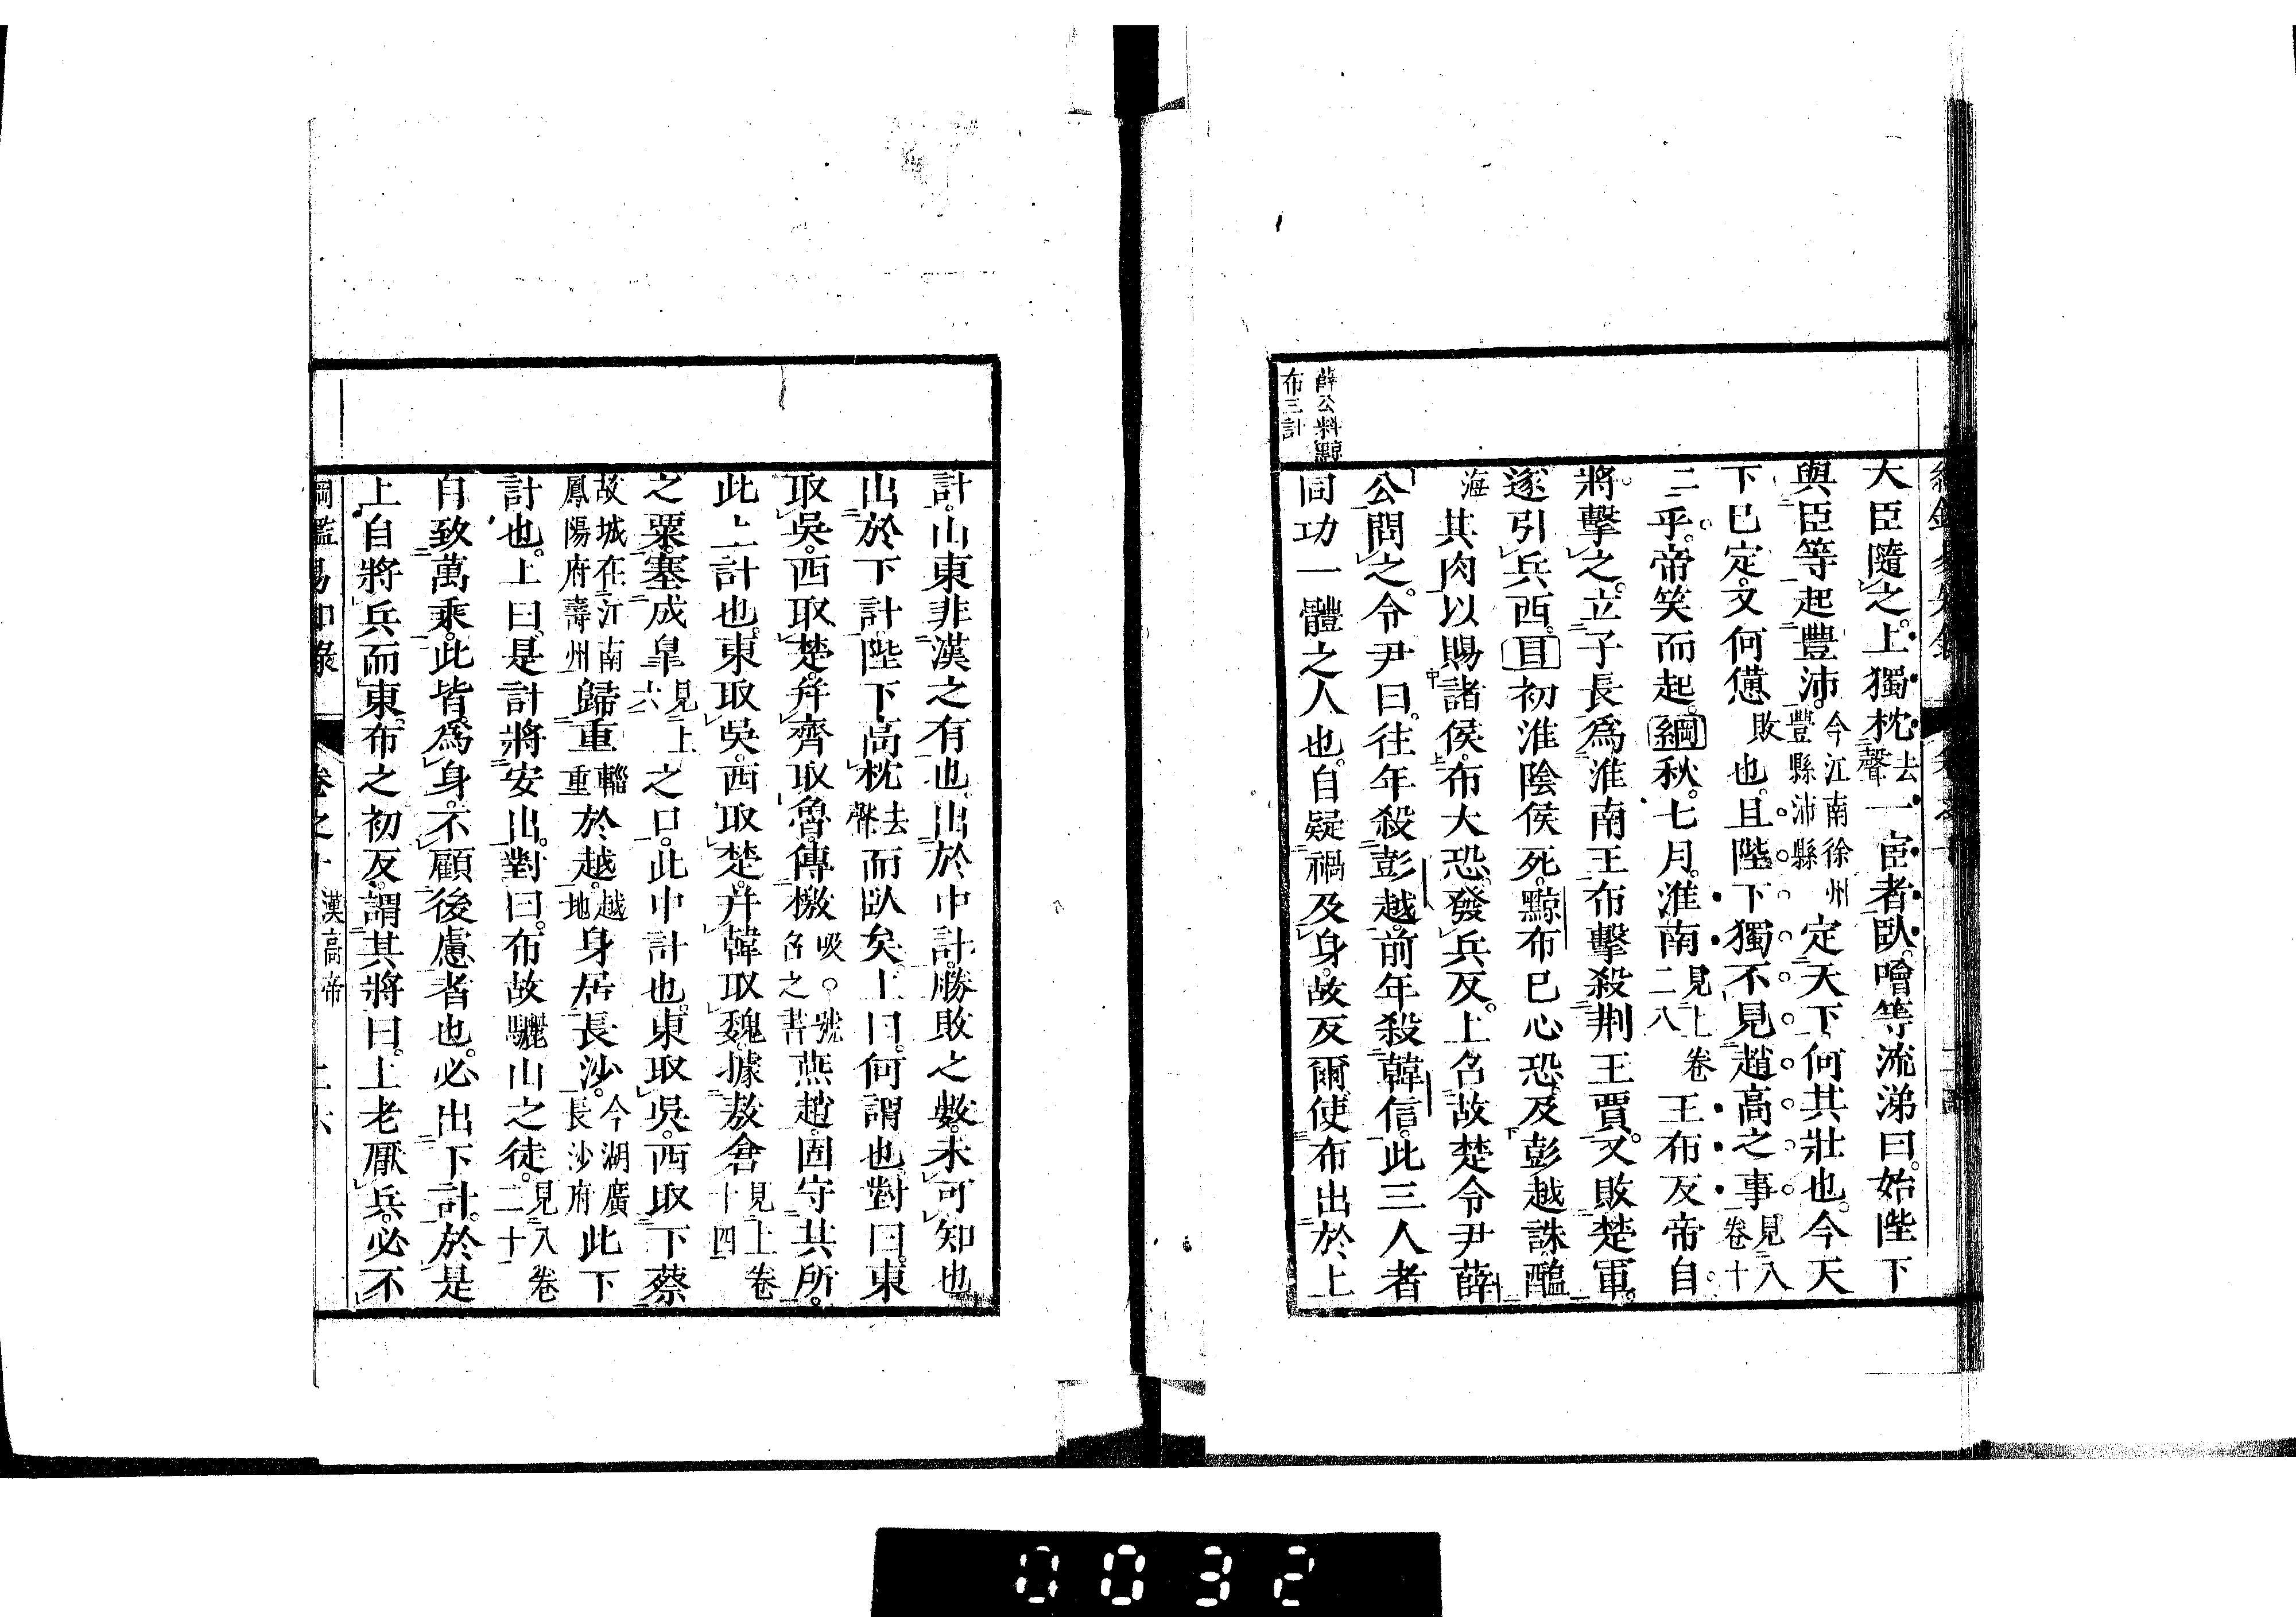 大臣隨之。上獨枕去聲一宦者臥。噲等流涕曰。始陛下
與臣等起豐沛。今江南徐州豐縣沛縣定天下。何其壯也。今天
下已定。又何憊敗也。且陛下獨不見趙高之事見八卷十
二乎。帝笑而起。綱秋。七月。淮南見上卷二八王布反。帝自
將擊之。立子長爲淮南王。布擊殺荆王賈。又敗楚軍。
遂引兵西。目初淮陰侯死。黥布已心恐。及彭越誅。醢
海其肉以賜諸侯。布大恐。發兵反。上召故楚令尹薛
公問之。令尹曰。往年殺彭越。前年殺韓信。此三人者
同功一體之人也。自疑禍及身。故反爾。使布出於上
薛公料黥
布三計
計。山東非漢之有也。出於中計。勝敗之數。未可知也
出於下計。陛下高枕去聲而臥矣。上曰。何謂也。對曰。東
取吳。西取楚。幷齊取魯。傳檄吸。○號召之書燕趙。固守其所。
此上計也。東取吳。西取楚。幷韓取魏。據敖倉見上卷十四
之粟。塞成皐見上六之口。此中計也。東取吳。西取下蔡
故城在江南鳳陽府壽州歸重輜重於越。越地身居長沙。今湖廣長沙府此下
計也。上曰。是計將安出。對曰。布故驪山之徒。見八卷二十一
自致萬乘。此皆爲身。不顧後慮者也。必出下計。於是
上自將兵而東。布之初反。謂其將曰。上老厭兵。必不
綱鑑易知錄 卷之十 漢高帝